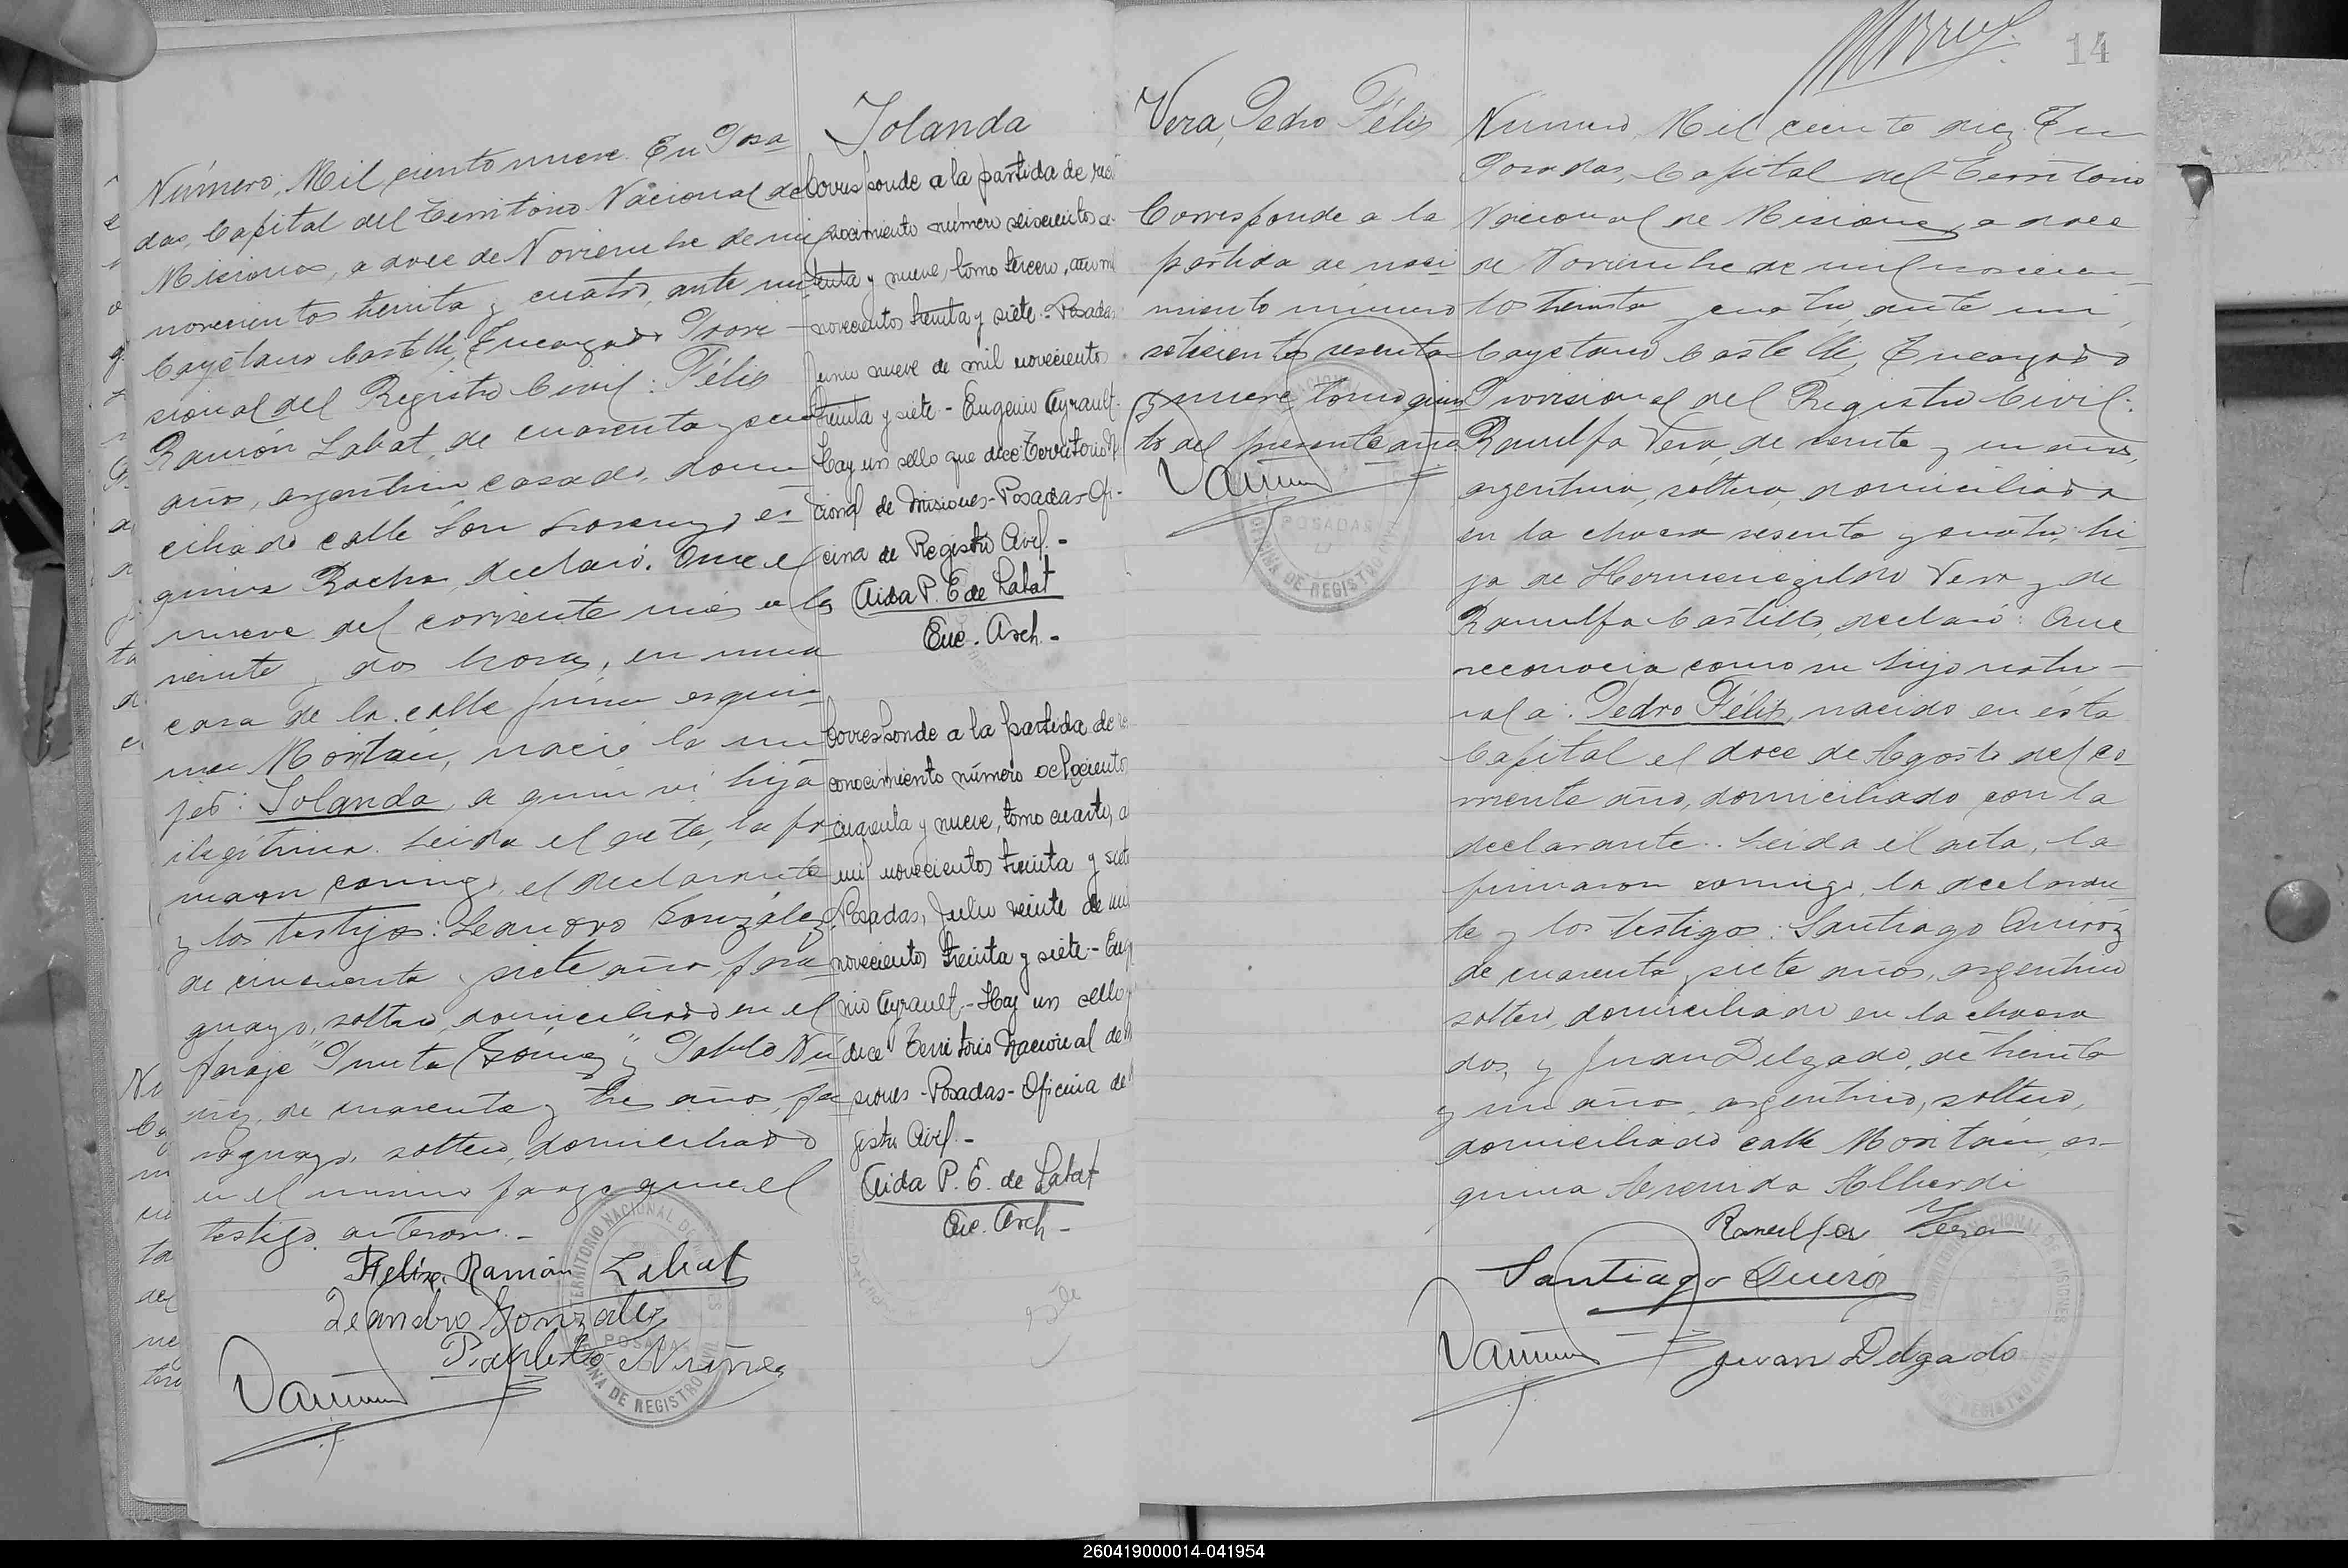 Número, Mil ciento nueve. En Posa
das, Capital del Territorio Nacional de
Misiones, a doce de Noviembre de mil
novecientos treinta y cuatro, ante mi
Cayetano Castelli, Encargado Provi-
sional del Registro Civil: Félix
Ramón Labat, de cuarenta y
años, argentino, casado, domi-
ciliado calle San Lorenzo es-
quina Rocha, declaró: Que el
nueve del corriente mes a las
veinte y dos horas, en una
casa de la calle Junin esqui-
na Moritán, nació la mu
jer: Iolanda, a quien vi, hija
ilegítima. Leida el acta, la fir-
maron conmigo, el declarante
y los testigos: Leandro González,
de cincuenta y siete años, para-
guayo, soltero, domiciliado en el
paraje "Punta Gómez", Pablo Nú-
ñez, de cuarenta y tres años, pa
raguayo, soltero, domiciliado
en el mismo paraje que el
testigo anterior.-
Felix Ramón Labat
Leandro Gonzalez
Pablo Nuñez
Iolanda
Corresponde a la partida de reco
nocimiento número seiscientos
enta y nueve, tomo tercero, año mil
novecientos treinta y siete.- Posadas
Junio nueve de mil novecientos
treinta y siete.- Eugenio Ayrault.
Hay un sello que dice: Territorio Na
cional de Misiones- Posadas- Ofi-
cina de Registro Civil.-
Aida P. E. de Labat
Enc. Arch.-
Corresponde a la partida de re
conocimiento número ochocientos
cincuenta y nueve, tomo cuarto, a
mil novecientos treinta y siete
Posadas, Julio veinte de mil
novecientos treinta y siete.- Euge
nio Ayrault.- Hay un sello
dice Territorio Nacional de Mi
siones - Posadas - Oficina de Re
gistro Civil.-
Aida P. E. de Labat
Enc. Arch.-
TERRITORIO NACIONAL DE MISIONES
POSADAS
OFICINA DE REGISTRO CIVIL
14
Vera, Pedro Félix
Corresponde a la
partida de naci
miento número
setecientos sesenta
y nueve tomo quin
to del presente año
POSADAS
OFICINA DE REGISTRO CIVIL
Número, Mil ciento diez. En
Posadas, Capital del Territorio
Nacional de Misiones, a doce
de Noviembre de mil novecien-
tos treinta y cuatro, ante mi,
Cayetano Castelli, Encargado
Provisional del Registro Civil:
Ramulfa Vera, de veinte y un años,
argentina, soltera, domiciliada
en la chacra sesenta y cuatro, hi-
ja de Hermenegildo Vera y de
Ramulfa Castillo, declaró: Que
reconocia como su hijo natu-
ral a: Pedro Félix, nacido en ésta
Capital el doce de Agosto del co
rriente año, domiciliado con la
declarante. Leida el acta, la
firmaron conmigo, la declaran-
te y los testigos: Santiago Quiróz
de cuarenta y siete años, argentino
soltero, domiciliado en la chacra
dos, y Juan Delgado, de treinta
y un años, argentino, soltero,
domiciliado calle Moritán, es-
quina Avenida Alberdi
Ramulfa Vera
Santiago Quiróz
Juan Delgado
260419000014-041954